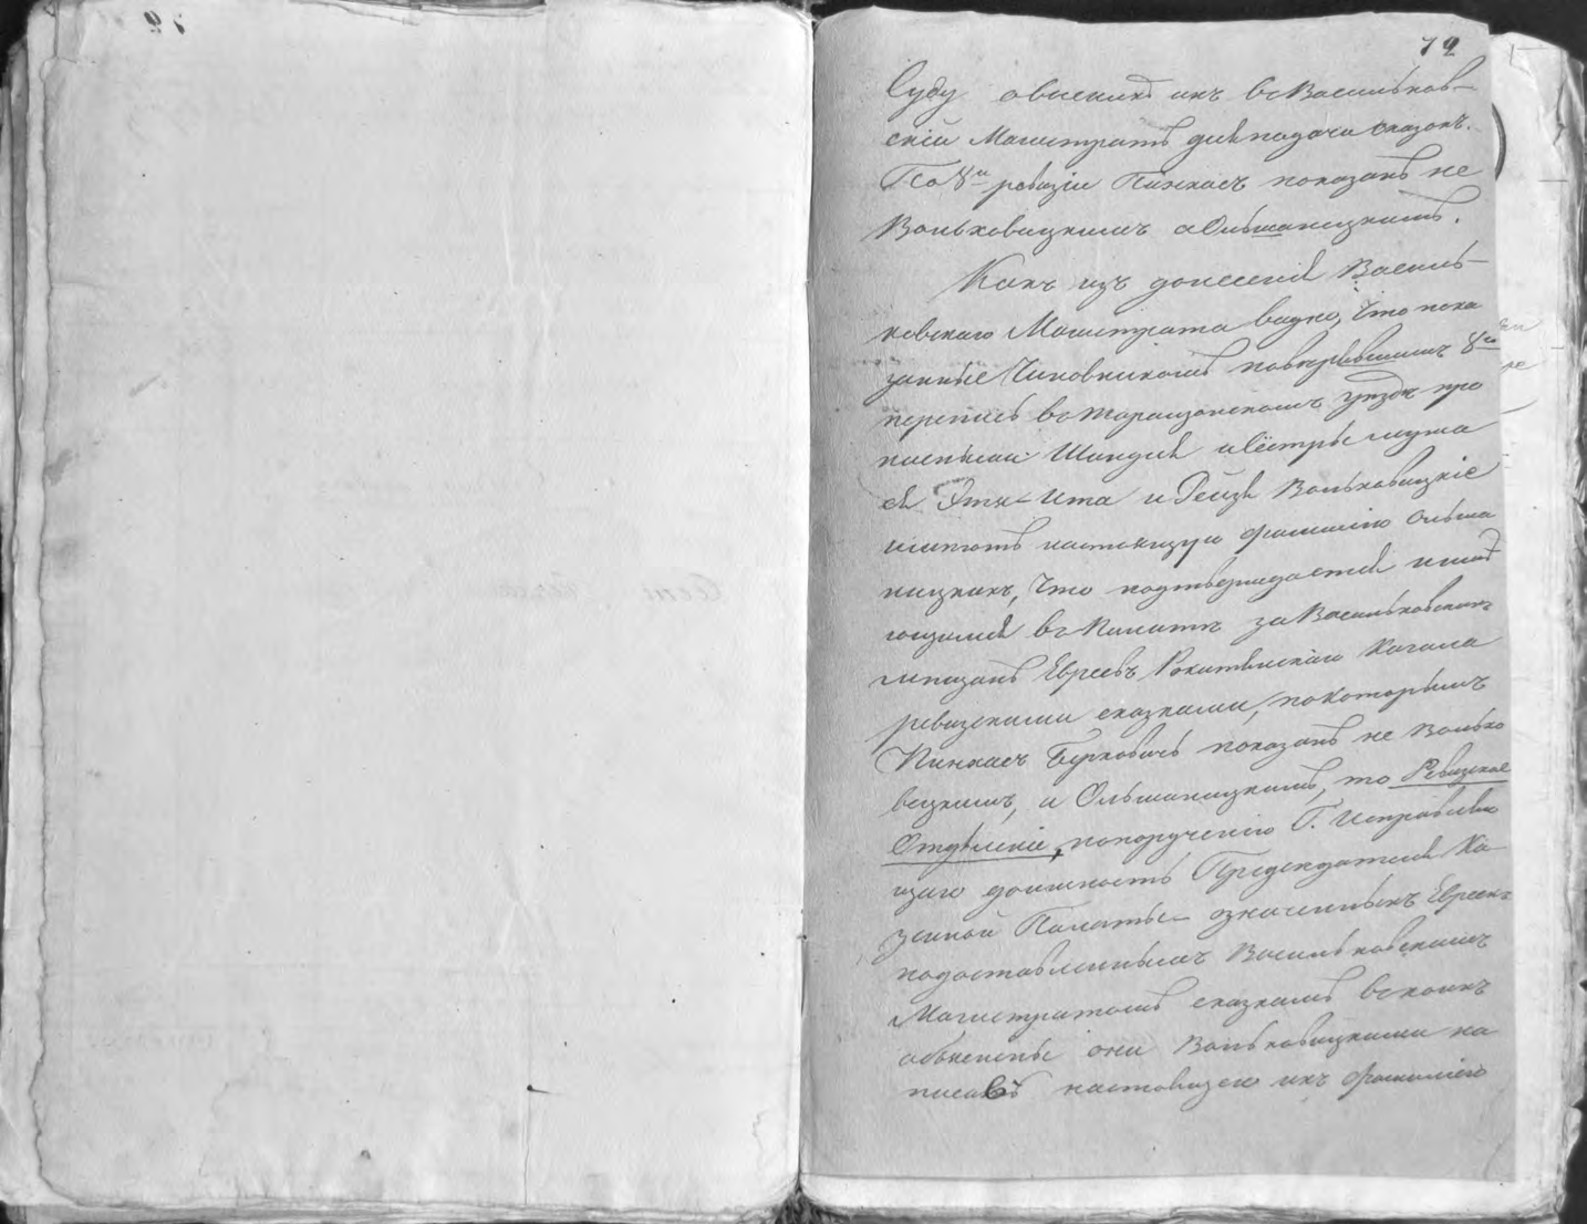 72
Суду о высылкѣ ихъ въ Васильков-
скій Магистратъ для подачи сказокъ.
По 8й ревизіи Пинхасъ показанъ не
Вольховицкимъ а Ольшаницкимъ.
Какъ изъ донесенія Василь-
ковскаго Магистрата видно, что пока
занные Чиновникомъ повѣрявшимъ 8ю
перепись въ Таращанскомъ уѣздѣ про
писными: Шандля и Сёстры мужа
ея Этя-Ита и Рейзя Вольховицкіе
имѣютъ настоящую фамилію Ольша
ницкихъ, что подтверждается имѣю
щимися въ Палатѣ за Васильковскимъ
мѣщанъ Евреевъ Рокитянскаго Кагала
ревизскими сказками, по которымъ
Пинхасъ Берковичъ показанъ не Вольхо
вецкимъ, а Ольшаницкимъ, то Ревизское
Отдѣленіе, по порученію Г. Исправляю
щаго должность Предсѣдателя Ка-
зенной Палаты - означенныхъ Евреекъ
по доставленнымъ Васильковскимъ
Магистратомъ сказкамъ въ коихъ
объяснены они Вольховицкими на
писавъ настоящею ихъ фамиліею